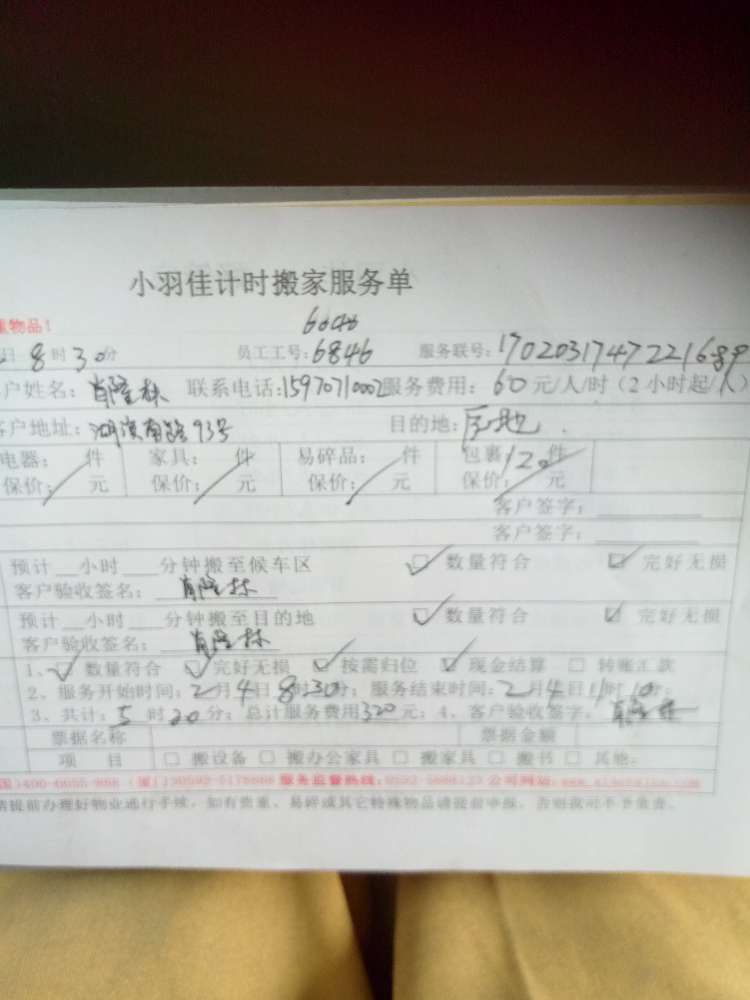 小羽佳计时搬家服务单
物品!
6046
日 8时30分 员工工号:6846 服务联号:170203174722168
户姓名:肖隆林 联系电话:15970710002服务费用:60元/人/时(2小时起/人)
客户地址:湖滨南路93号 目的地:
电器: 件 家具: 件 易碎品: 件 包裹:120件
保价: 元 保价: 元 保价: 元 保价: 元
客户签字:
客户签字:
预计__小时___分钟搬至候车区 ☑ 数量符合 ☑ 完好无损
客户验收签名: 肖隆林
预计__小时___分钟搬至目的地 ☑ 数量符合 ☑ 完好无损
客户验收签名: 肖隆林
1、☑ 数量符合 ☑ 完好无损 ☑ 按需归位 ☑ 现金结算 □ 转账汇款
2、服务开始时间:2月4日8时30分;服务结束时间:2月4日11时10分;
3、共计:5时20分;总计服务费用320元;4、客户验收签字:肖隆林
票据名称 票据金额
项 目 □ 搬设备 □ 搬办公家具 □ 搬家具 □ 搬书 □ 其他:
服务监督热线: 公司网站:
请提前办理好物业通行手续,如有贵重、易碎或其它特殊物品请提前申报,否则我司不予负责。